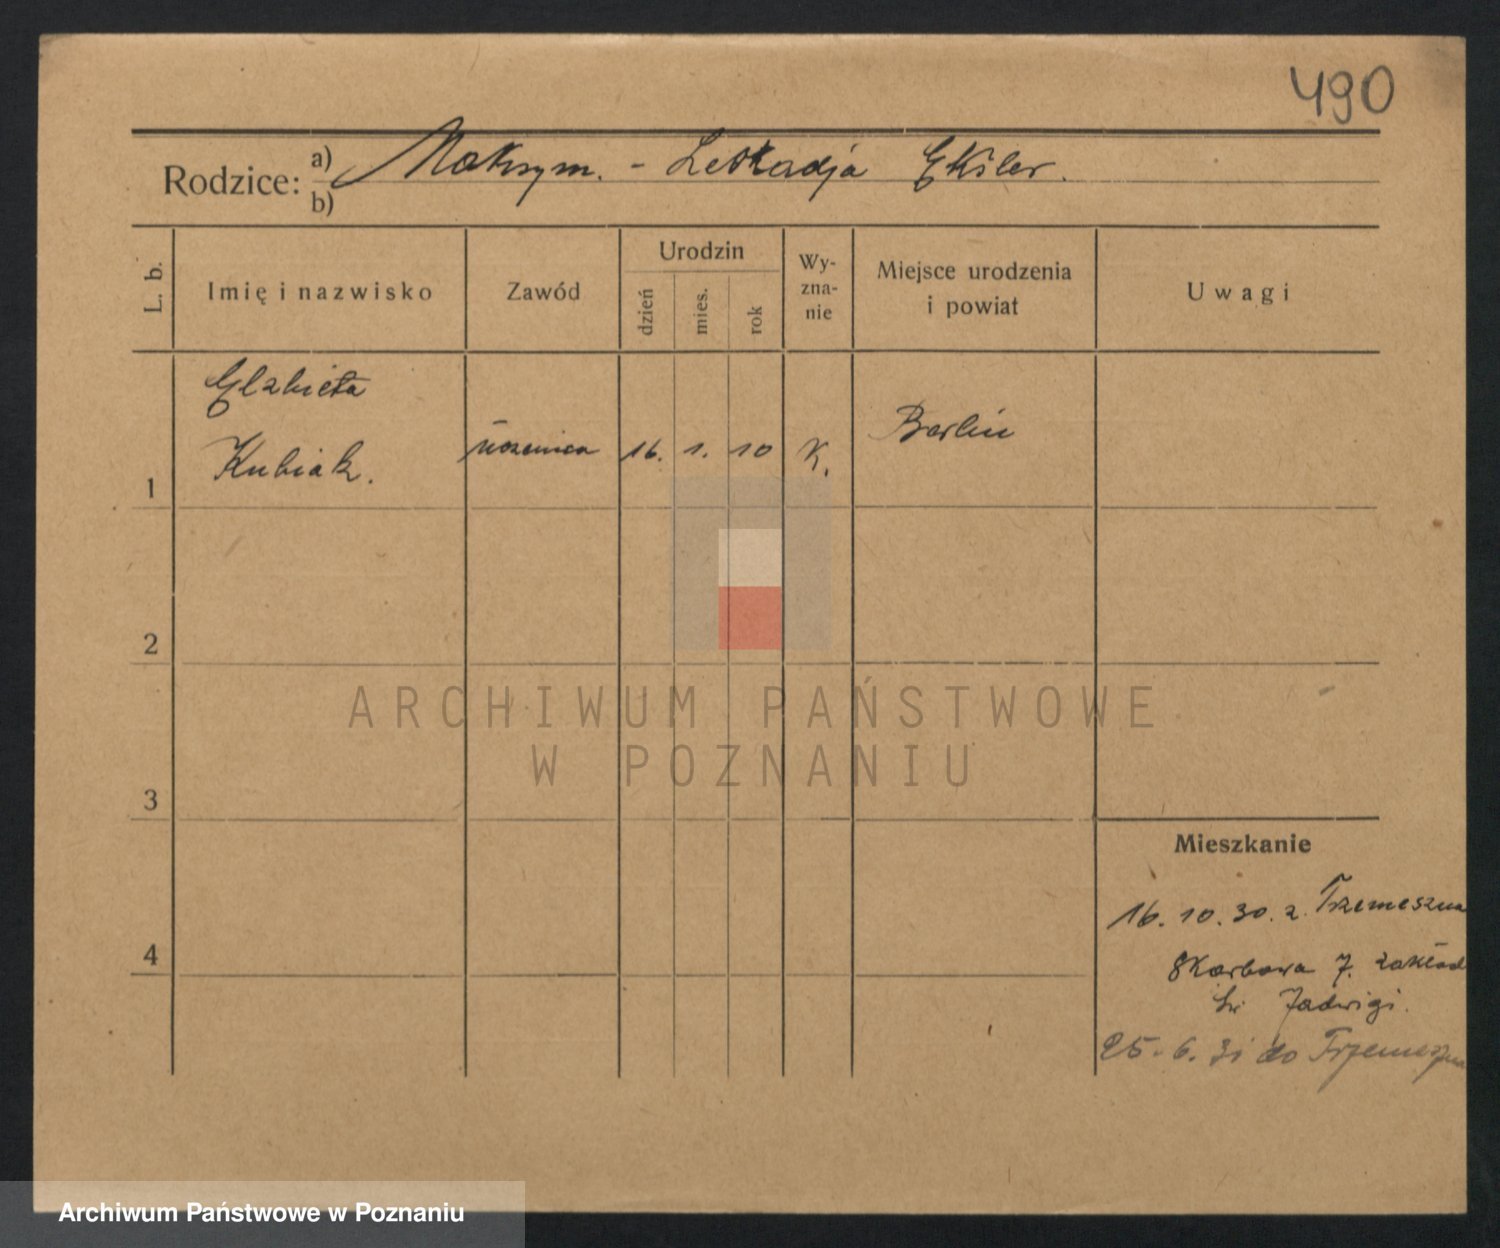 490
Rodzice: a) Maksym. - Leokadja Eksler.
b)
L. b.
Imię i nazwisko
Zawód
Urodzin
dzień
mies.
rok
Wy-
zna-
nie
Miejsce urodzenia
i powiat
Uwagi
Elzbieta
Kubiak.
1
uczenica
16.
1.
10
K.
Berlin
2
3
4
ARCHIWUM PAŃSTWOWE
W POZNANIU
Mieszkanie
16. 10. 30. z Trzemeszna
Skarbowa 7. zakład
św Jadwigi.
25. 6. 31 do Trzemeszna
Archiwum Państwowe w Poznaniu